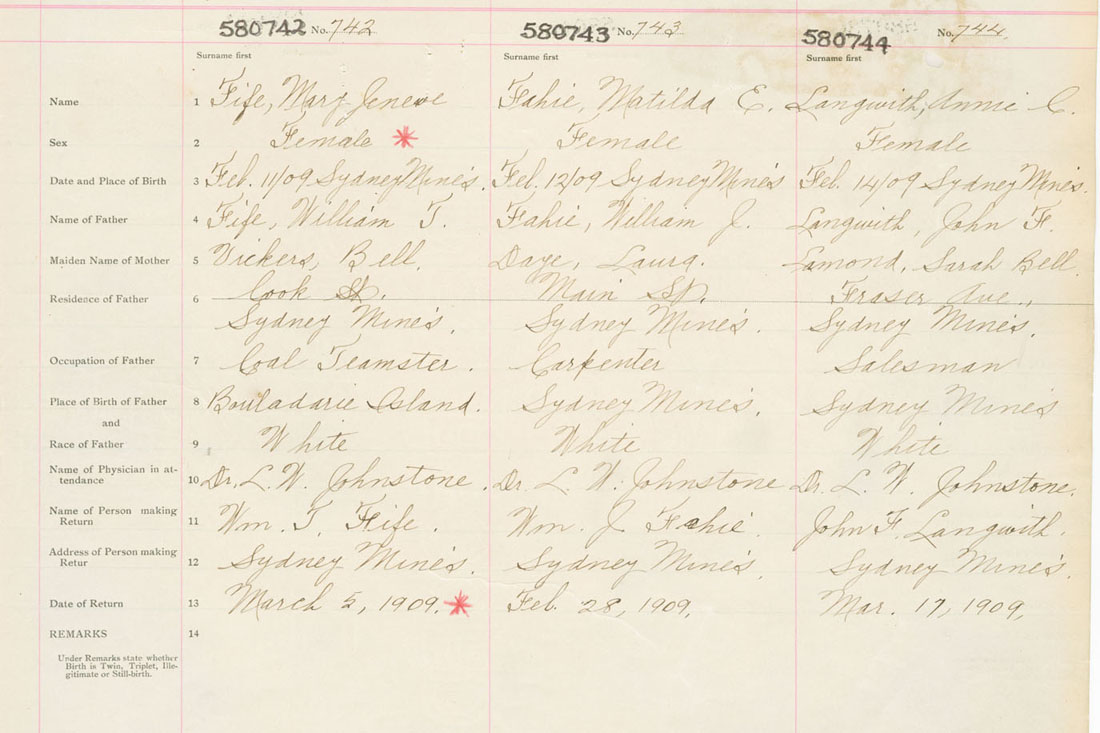 580742 No. 742 580743 No. 743 580744 No. 744
Surname first Surname first Surname first
Name 1 Fife, Mary Geneve Fahie, Matilda E. Langwith, Annie C.
Sex 2 Female * Female Female
Date and Place of Birth 3 Feb. 11/09 Sydney Mines. Feb. 12/09 Sydney Mines Feb. 14/09 Sydney Mines.
Name of Father 4 Fife, William T. Fahie, William J. Langwith, John F.
Maiden Name of Mother 5 Vickers, Bell. Daye, Laura. Lamond, Sarah Bell.
Residence of Father 6 Cook St. Main St. Fraser Ave.,
Sydney Mines. Sydney Mines. Sydney Mines.
Occupation of Father 7 Coal Teamster. Carpenter Salesman
Place of Birth of Father 8 Bouladarie Island. Sydney Mines. Sydney Mines
and
Race of Father 9 White White White
Name of Physician in at-
tendance 10 Dr. L. W. Johnstone. Dr. L. W. Johnstone Dr. L. W. Johnstone.
Name of Person making
Return 11 Wm. T. Fife. Wm. J. Fahie. John F. Langwith.
Address of Person making
Retur 12 Sydney Mines. Sydney Mines. Sydney Mines.
Date of Return 13 March 5, 1909. * Feb. 28, 1909. Mar. 17, 1909.
REMARKS 14
Under Remarks state whether
Birth is Twin, Triplet, Ille-
gitimate or Still-birth.